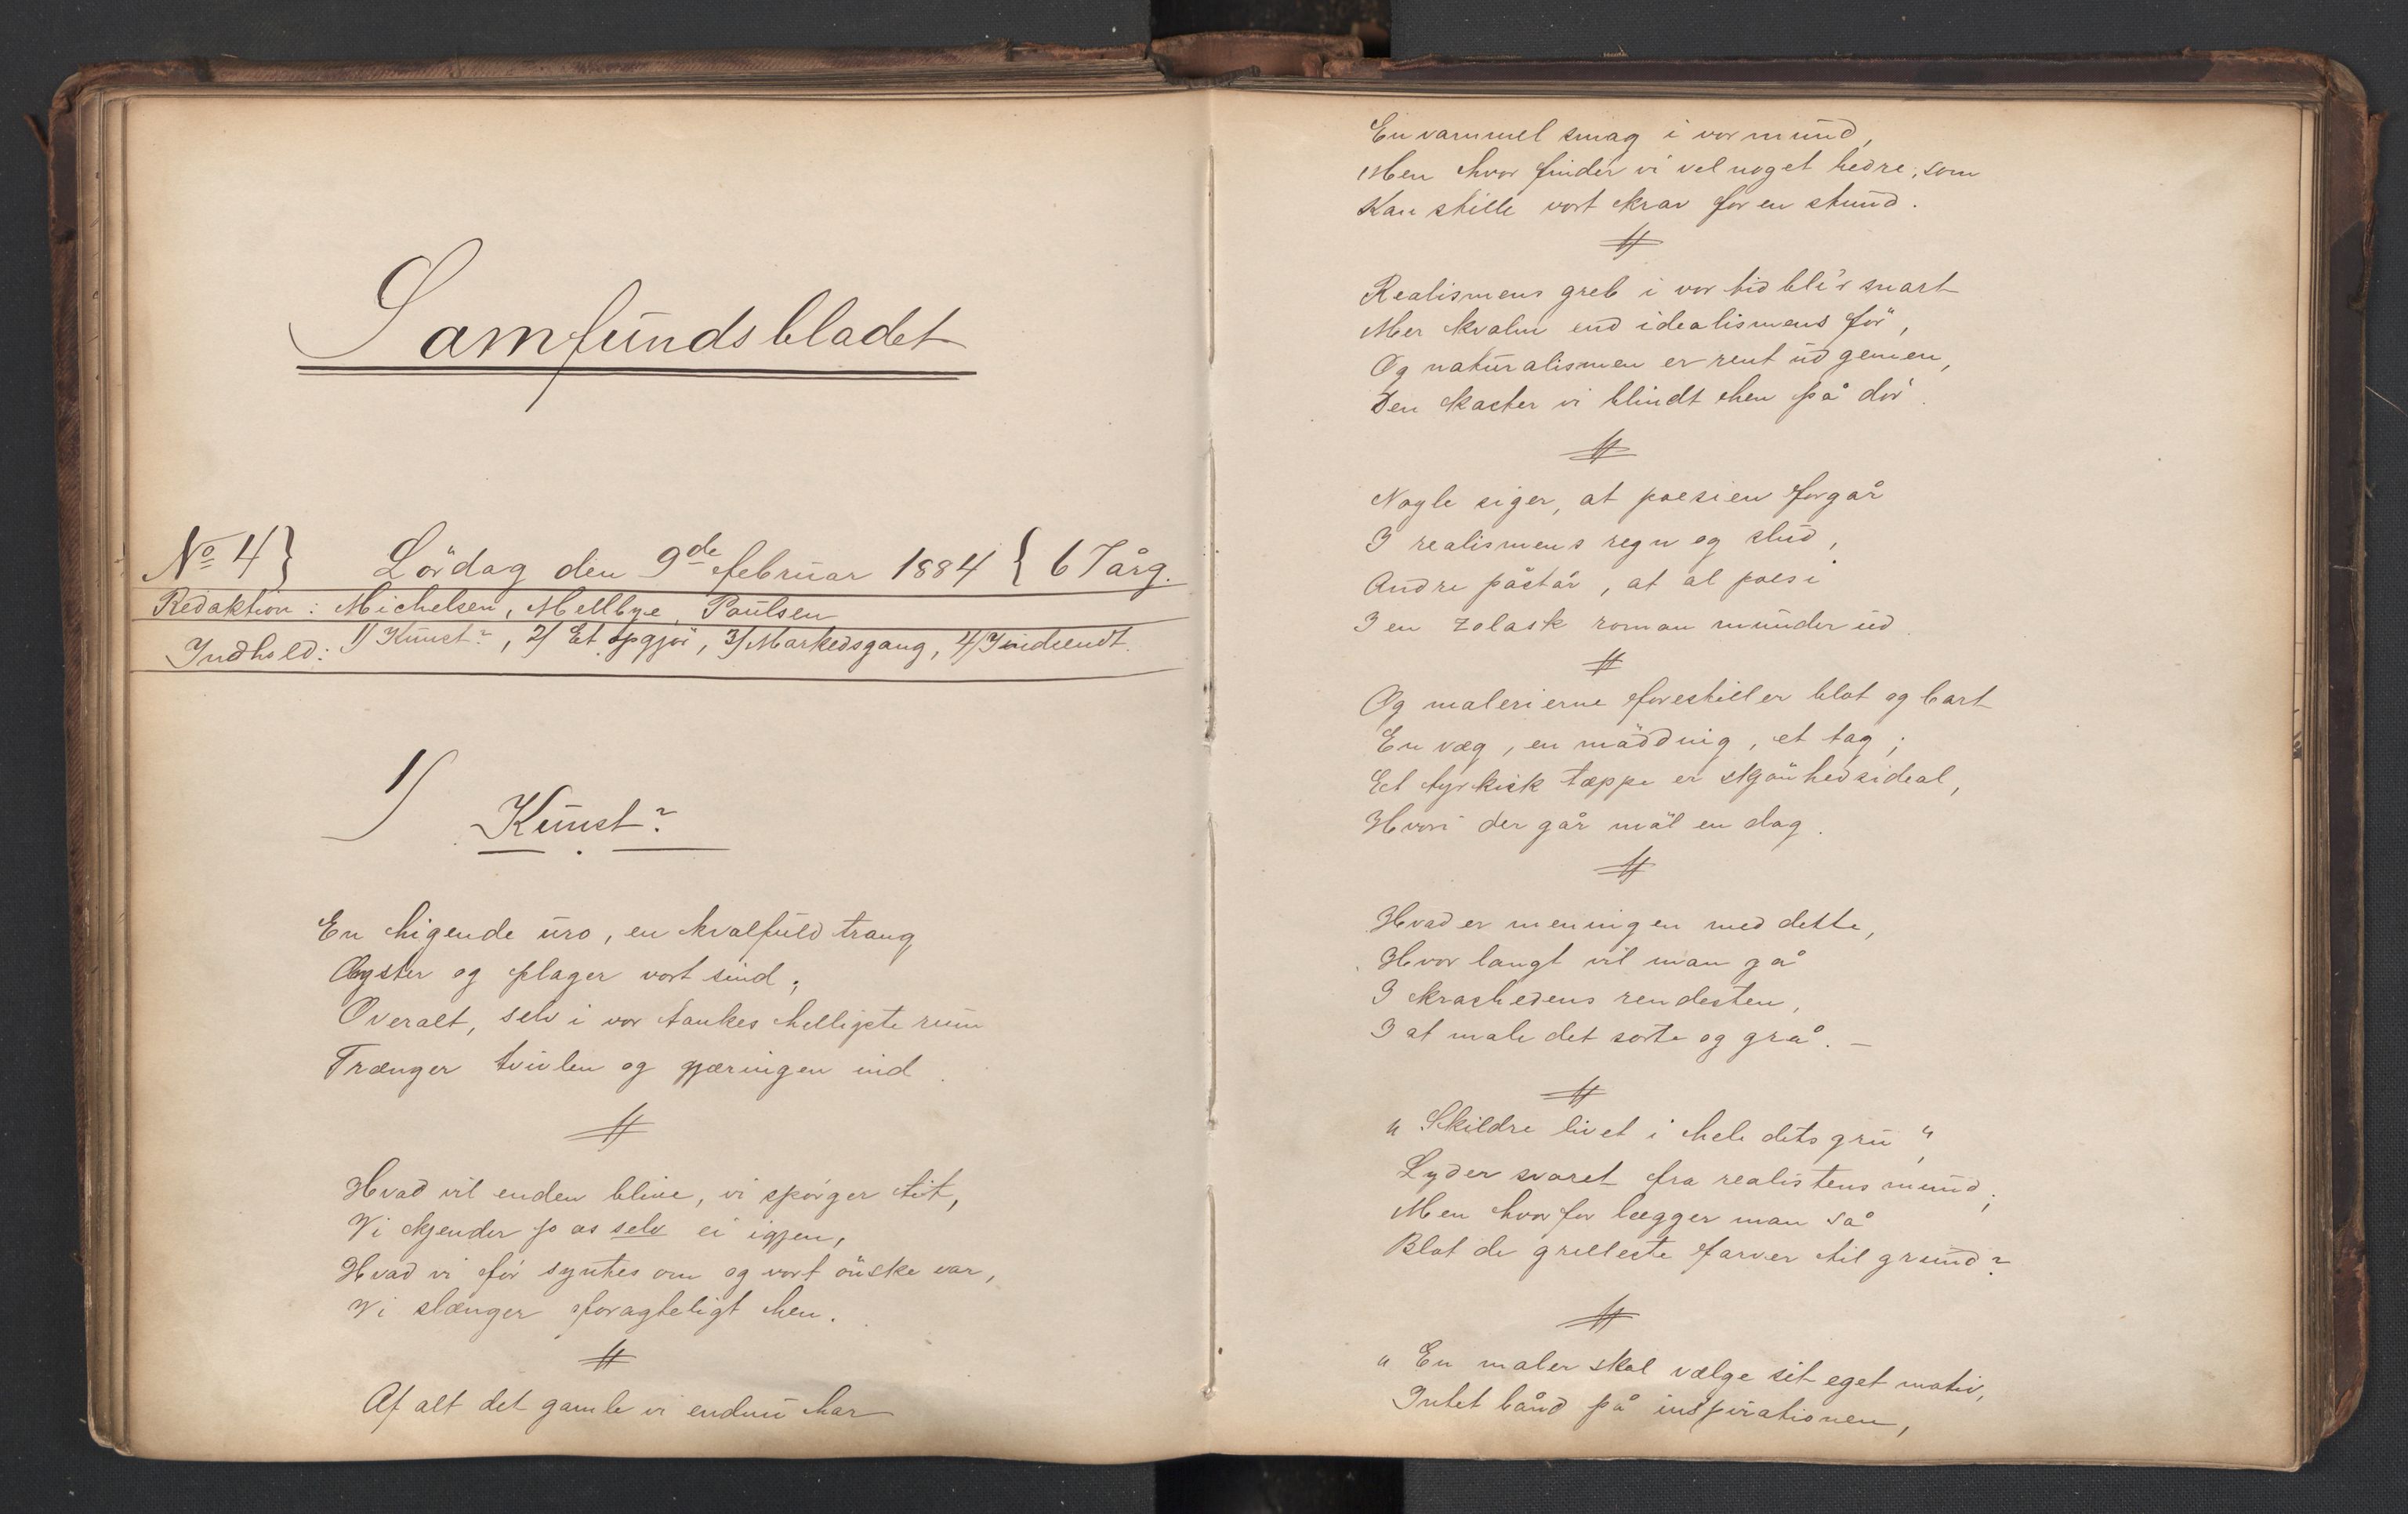 Samfundsbladet
No 4} Lördag den 9de februar 1884 { 6 Tårg.
Redaktion: Michelsen, Mellbye, Paulsen
Indhold: 1) Kunst?, 2) Et opgjör, 3) Markedsgang, 4) Indsendt.
1)
Kunst?
En higende uro, en kvalfuld trang
Ryster og plager vort sind;
Overalt, selv i vor tankes helligste rum
Trænger tvivlen og gjæringen ind.
Hvad vil enden blive, vi spörger tit,
Vi kjender jo os selv ei igjen,
Hvad vi för syntes om og vort önske var,
Vi slænger foragteligt hen.
Af alt det gamle vi endnu har
En vammel smag i vor mund,
Men hvor finder vi vel noget bedre, som
Kan stille vort krav for en stund.
Realismens greb i vor tid bli'r snart
Mer kvalm end idealismens för,
Og naturalismen er rent ud gemen,
Den kaster vi blindt hen på dör.
Nogle siger, at poesien forgår
I realismens regn og slud,
Andre påstår, at al poesi
I en zolask roman munder ud.
Og malerierne forestiller blot og bart
En væg, en mödding, et tag;
Et tyrkisk tæppe er skjönhedsideal,
Hvori der går möl en dag.
Hvad er meningen med dette,
Hvor langt vil man gå
I krashedens rendesten,
I at male det sorte og grå. —
"Skildre livet i hele dets gru",
Lyder svaret fra realistens mund;
Men hvorfor lægger man så
Blot de grelleste farver til grund?
"En maler skal vælge sit eget motiv,
Intet bånd på inspirationen,